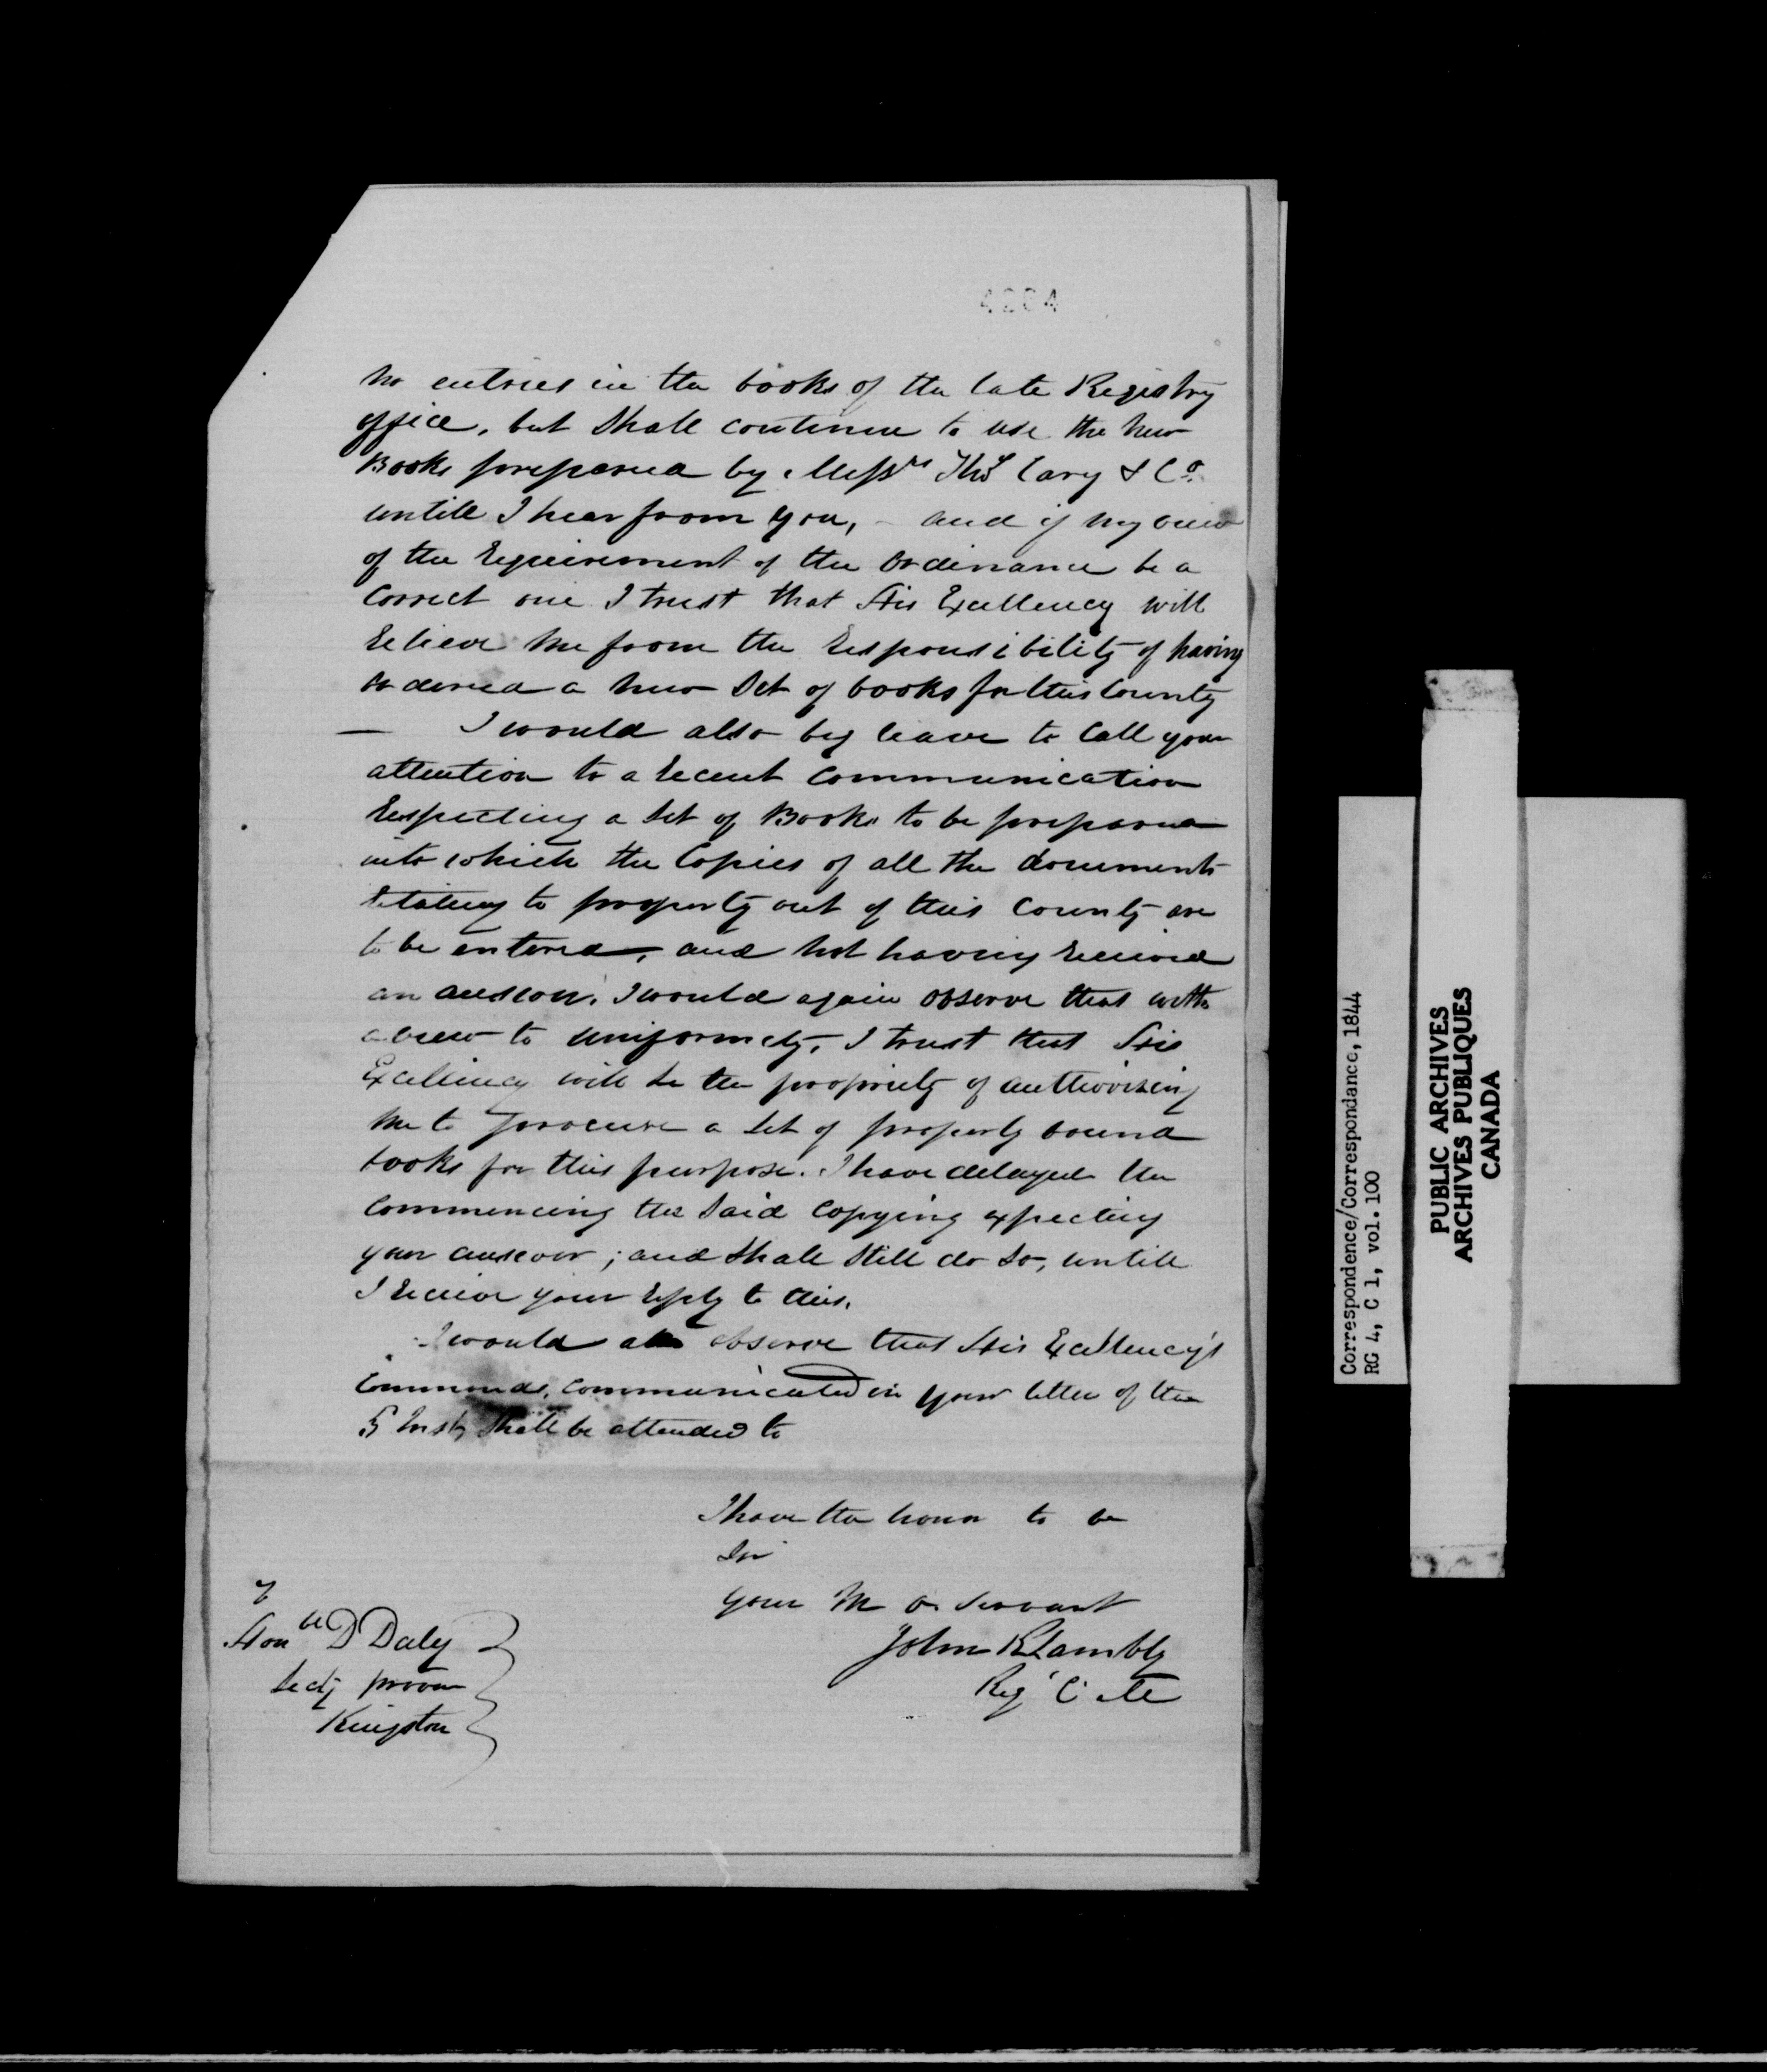 4204
no entries in the books of the late Registry
office, but shall continue to use the new
Books prepared by Messrs Thos Cary & Co.
untill I hear from you, - and if my view
of the requirement of the Ordinance be a
correct one I trust that His Excellency will
relieve me from the responsibility of having
ordered a new set of books for this County
— I would also beg leave to call your
attention to a recent communication
respecting a set of Books to be prepared
into which the Copies of all the documents
relating to property out of this County are
to be entered, and not having received
an answer. I would again observe that with
a view to uniformity, I trust that His
Excellency will se the propriety of authorising
me to procure a set of properly bound
books for this purpose. I have delayed the
commencing the said copying expecting
your answer; and shall still do so, untill
I receive your reply to this.
I would also observe that His Excellency's
Commands, communicated in your letter of the
5 Inst, shall be attended to
I have the honor to be
Sir
your M O Servant
John R Lambly
Reg C M
To
Honble D Daly
Secty provce
Kingston
Correspondence/Correspondance, 1844
RG 4, C 1, vol. 100
PUBLIC ARCHIVES
ARCHIVES PUBLIQUES
CANADA